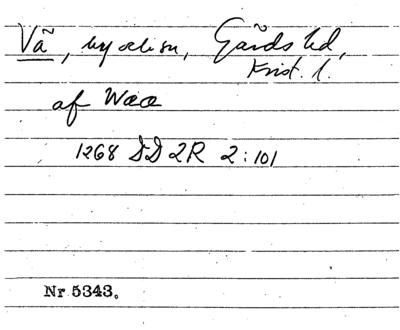 Vã, by o. sn, Gärds hd,
Krist. l.
af Waa
1268 DD 2R 2:101
Nr 5343.